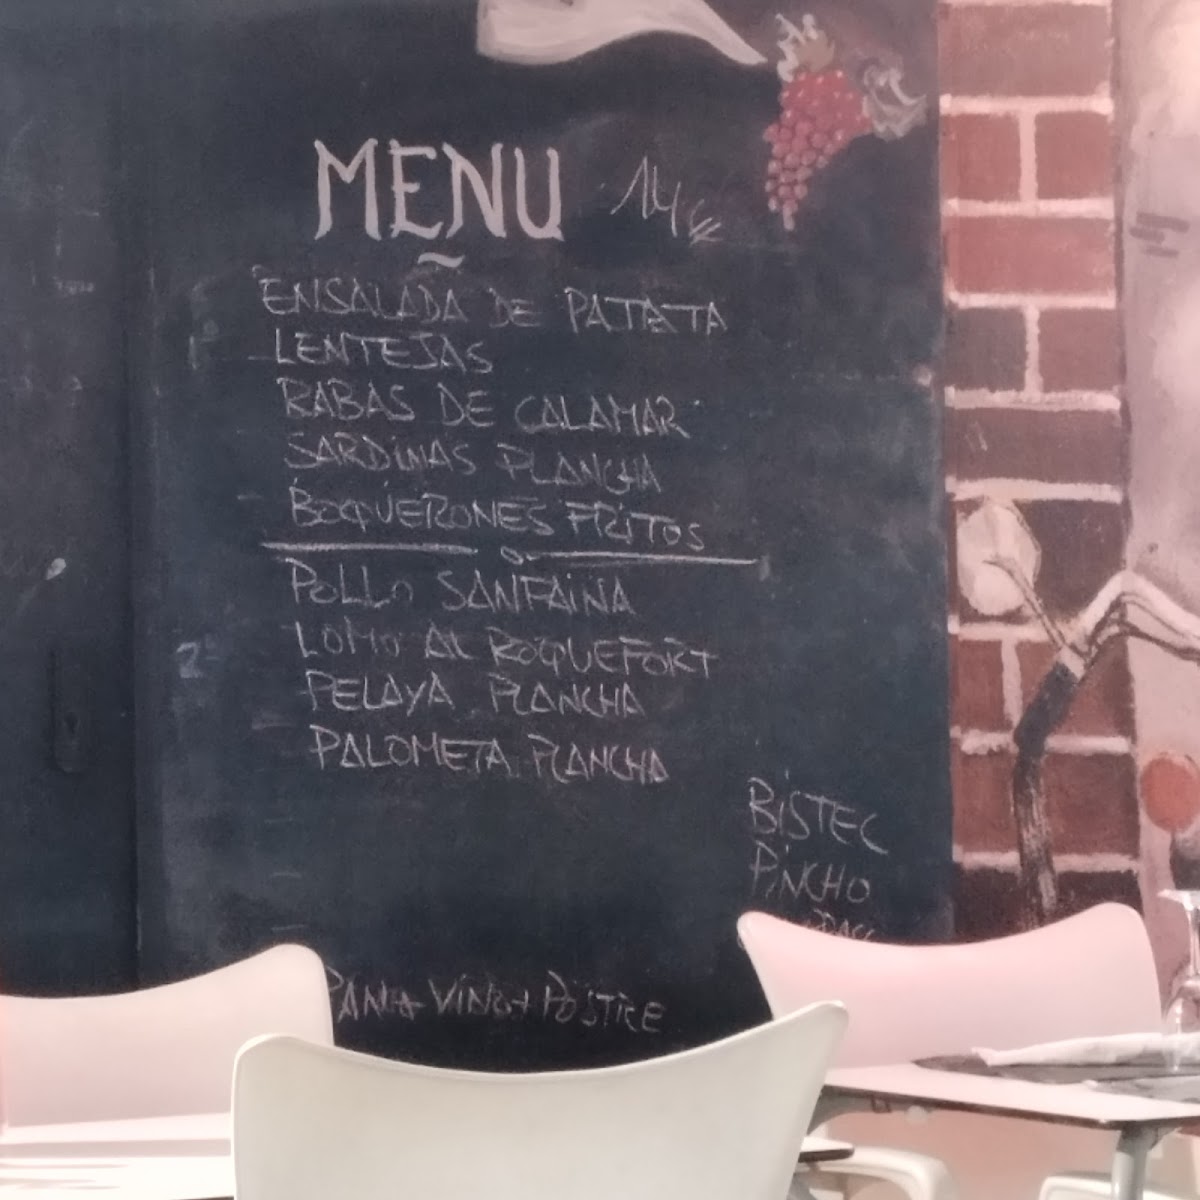 MENU 14€
ENSALADA DE PATATA
LENTEJAS
RABAS DE CALAMAR
SARDINAS PLANCHA
BOQUERONES FRITOS
POLLO SANFAINA
LOMO AL ROQUEFORT
PELAYA PLANCHA
PALOMETA PLANCHA
BISTEC
PINCHO
PAN + VINO + POSTRE